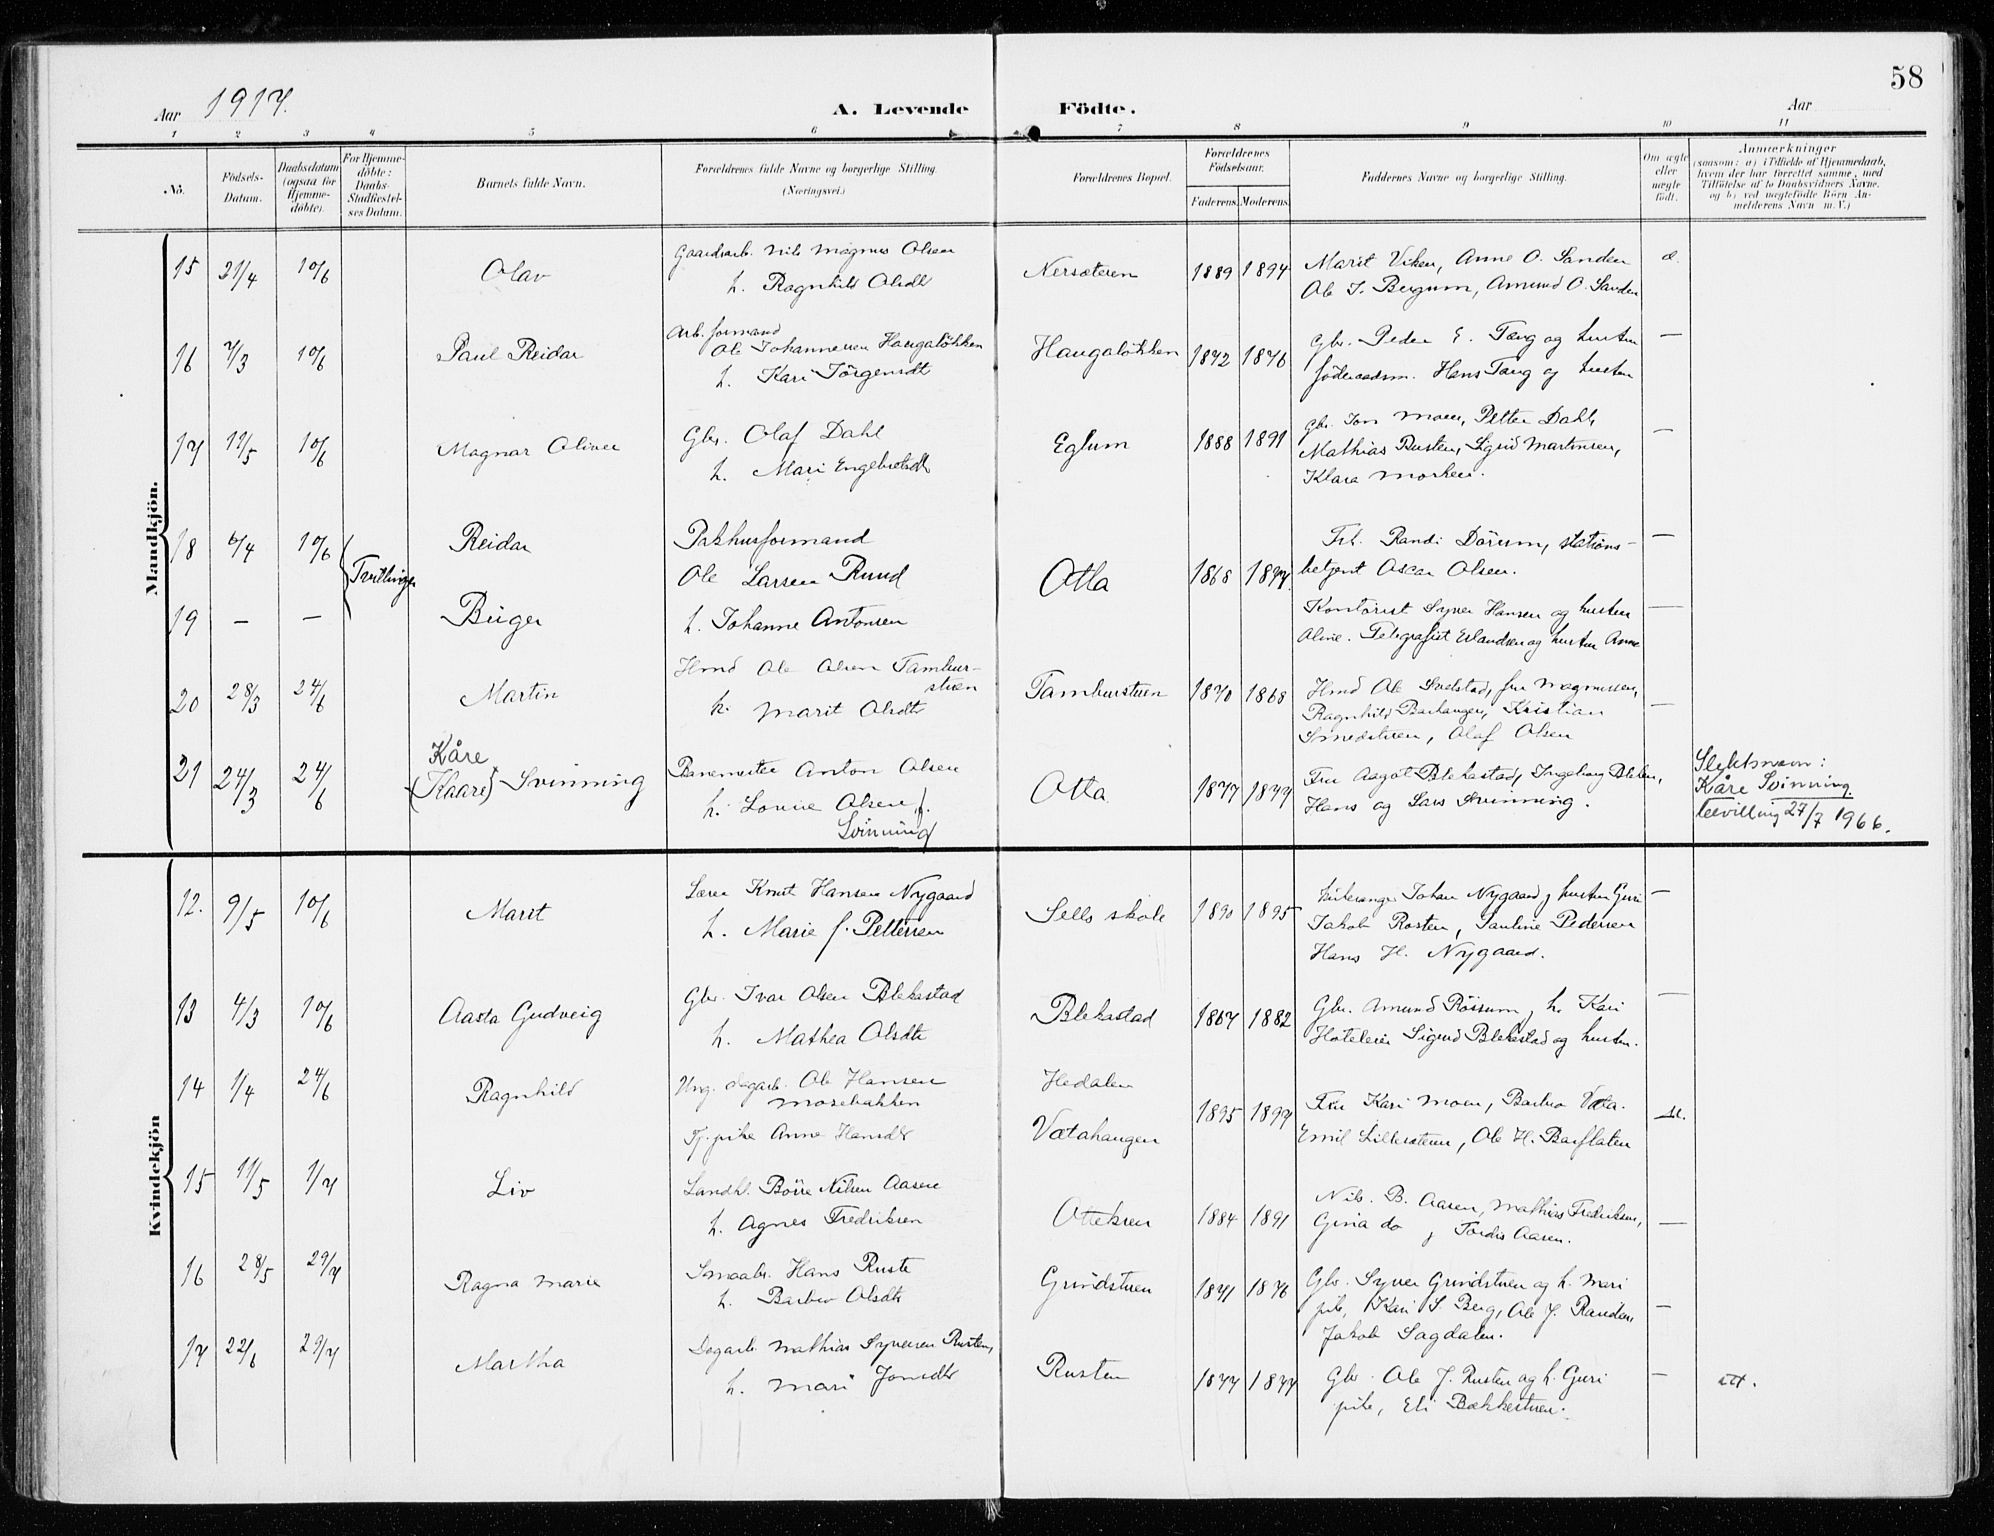 58
Aar 1917.
A. Levende Födte.
Aar
1 2 3 4 5 6 7 8 9 10 11
No.
Födsels-Datum.
Daabsdatum (ogsaa for Hjemme-döbte).
For Hjemme-döbte: Daabs-Stadfæstel-ses Datum.
Barnets fulde Navn.
Forældrenes fulde Navne og borgerlige Stilling (Næringsvei.)
Forældrenes Bopæl.
Forældrenes Födselsaar.
Faderens. Moderens.
Faddernes Navne og borgerlige Stilling.
Om ægte eller uægte födt.
Anmærkninger
(saasom: a) i Tilfælde af Hjemmedaab,
hvem der har forrettet samme, med
Tilföielse af to Daabsvidners Navne.
og b) ved uægtefödte Börn An-
melderens Navn m. V.)
Mandkjön.
15 21/4 10/6 Olav
Gaardsarb. Nils Magnus Olsen
h. Ragnhild Olsdtr
Nersæteren 1889 1894
Marit Viken, Anne O. Sanden
Ole J. Bergum, Amund O. Sanden
æ.
16 7/3 10/6 Paul Reidar
Arb.formand
Ole Johannesen Haugaløkken
h. Kari Jörgensdtr
Haugaløkken 1872 1876
Gbr. Peder E. Tæng og hustru
föderaadsm. Hans Tæng og hustru
—
17 11/5 10/6 Magnar Oliver
Gbr. Olaf Dahl
h. Mari Engebretsdtr
Eglum 1888 1891
Gbr. Jon Moen, Petter Dahl,
Mathias Rusten, Sigrid Martinsen,
Klara Morken.
—
18 6/4 10/6 Tvillinger Reidar
Pakhusformand
Ole Larsen Ruud
Otla 1868 1877
Frk. Randi Dörum, stations-
betjent Oscar Olsen.
—
19 — — Birger
h. Johanne Antonsen
Kontorist Syver Hansen og hustru
Aline. Telegrafist Erlandsen og hustru Anne
—
20 28/3 24/6 Martin
Hmd Ole Olsen Tamburstuen
h. Marit Olsdtr
Tamburstuen 1870 1868
Hmd Ole Selstad, fru Magnussen,
Ragnhild Barhaugen, Kristian
Smedstuen, Olaf Olsen
—
21 24/3 24/6 Kåre
(Kaare) Svinning
Banemester Anton Olsen
h. Lovise Olsen f.
Svinning
Otta 1877 1879
Fru Aagot Blekastad, Ingeborg Bleken,
Hans og Lars Svinning.
Slektsnavn:
Kåre Svinning.
bevilling 27/7 1966.
Kvindekjön
12. 9/5 10/6 Marit
Lærer Knut Hansen Nygaard
h. Marie f. Pettersen
Sells skole 1890 1895
Kirkesanger Johan Nygaard, hustru Guri
Jakob Rosten, Pauline Pedersen
Hans H. Nygaard.
—
13 4/3 10/6 Aasta Gudveig
Gbr. Ivar Olsen Blekastad
h. Mathea Olsdtr
Blekastad 1867 1882
Gbr. Amund Røssum, h. Kari
Hoteleier Sigurd Blekastad og hustru.
—
14 1/4 24/6 Ragnhild
Ung. dagarb. Ole Hansen
Mosebakken
Tj. pike Anne Hansdtr
Hedalen
Vætahaugen 1895 1899
Fru Kari Moen, Barbro Væta.
Emil Lillesteen, Ole H. Barflaten
15 11/5 1/7 Liv
Landh. Börre Nilsen Aasen
h. Agnes Fredriksen
Otteksen 1884 1891
Nils. B. Aasen, Mathias Fredriksen,
Gina do, Tordis Aasen.
—
16 28/5 29/7 Ragna Marie
Smaabr. Hans Ruste
h. Barbro Olsdtr
Grindstuen 1871 1876
Gbr. Syver Grindstuen og h. Mari
pike, Kari S. Berg, Ole J. Randen,
Jakob Sagdalen.
—
17 22/6 29/7 Martha
Dagarb. Mathias Syversen Rusten,
h. Mari Jonsdtr
Rusten 1877 1877
Gbr. Ole J. Rusten og h. Guri
pike, Eli Bækkestuen.
—